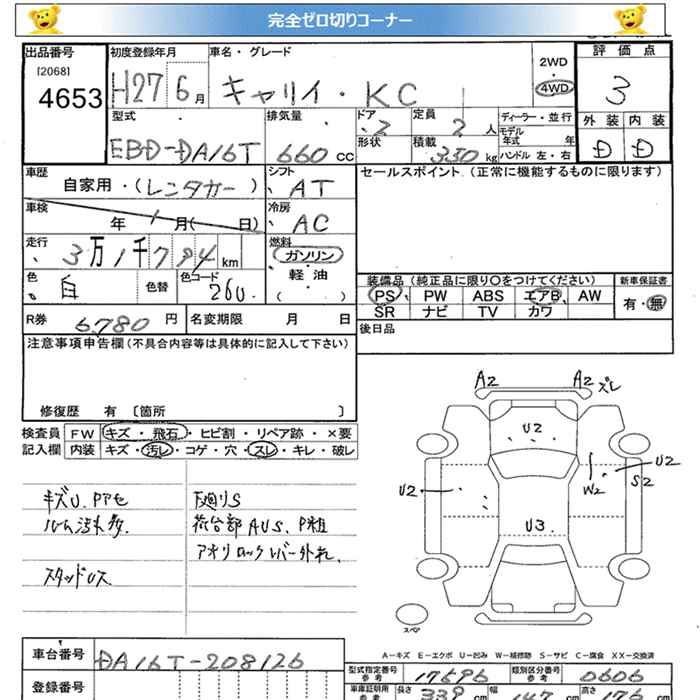 完全ゼロ切りコーナー
出品番号 初度登録年月 車名・グレード 2WD 評価点
[2068]
4653 H27 6月 キャリイ・KC ・ 4WD 3
型式 排気量 ドア 定員 ディーラー・並行 外装 内装
EBD-DA16T 660cc 2 2人 モデル年式 年 D D
形状 積載 350kg ハンドル 左・右
車歴 シフト セールスポイント (正常に機能するものに限ります)
自家用・(レンタカー) AT
車検 冷房
年 月( 日) AC
走行 燃料
3万1千794km ガソリン
軽・油
色 色替 色コード ( )
白 26U 装備品(純正品に限り○をつけてください) 新車保証書
PS PW ABS エアB AW 有・無
R券 6780円 名変期限 月 日 SR ナビ TV カワ
注意事項申告欄(不具合内容等は具体的に記入して下さい) 後日品
修復歴 有 〔箇所 〕
検査員 FW キズ・飛石・ヒビ割・リペア跡・×要
記入欄 内装 キズ・汚レ・コゲ・穴・スレ・キレ・破レ
キズU、Pアセ 下廻りS
ルーム汚れ多 荷台部AUS、P粗
アオリロックレバー外れ
スタッドレス
A2 A2 ズレ
U2
U2 W2 U2 S2
U3
スペア
A－キズ E－エクボ U－凹み W－補修跡 S－サビ C－腐食 XX－交換済
車台番号 DA16T-208126
登録番号
型式指定番号 参考 17696 類別区分番号 参考 0606
車庫証明用 参考 長さ 339cm 幅 147cm 高さ 176cm